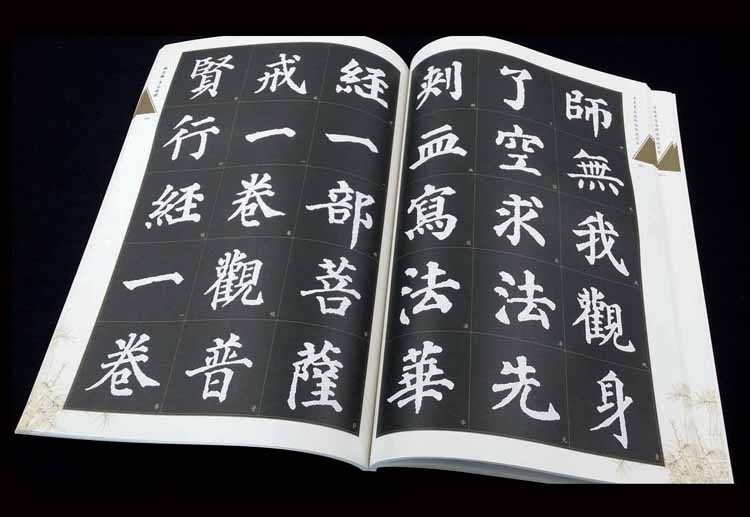 師無我觀身
了空求法先
刾血寫法華
經一部菩薩
戒一卷觀普
賢行經一卷